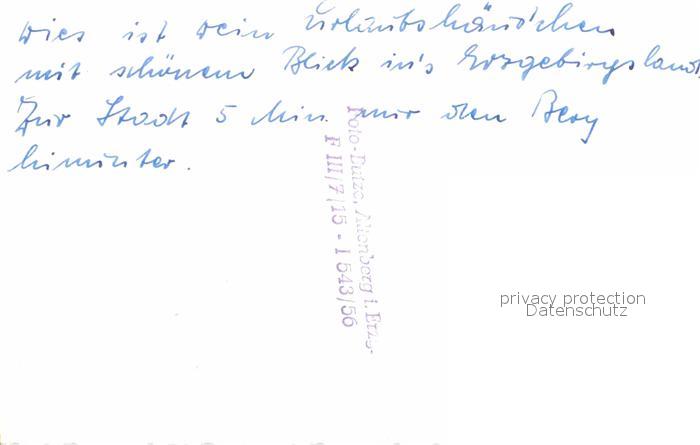 Dies ist mein Urlaubshäuschen
mit schönem Blick in's Erzgebirgsland
Zur Stadt 5 Min. nur den Berg
hinunter.
Foto-Butze, Altenberg i. Erzg.
F III/7/15 - I 543/56
privacy protection
Datenschutz